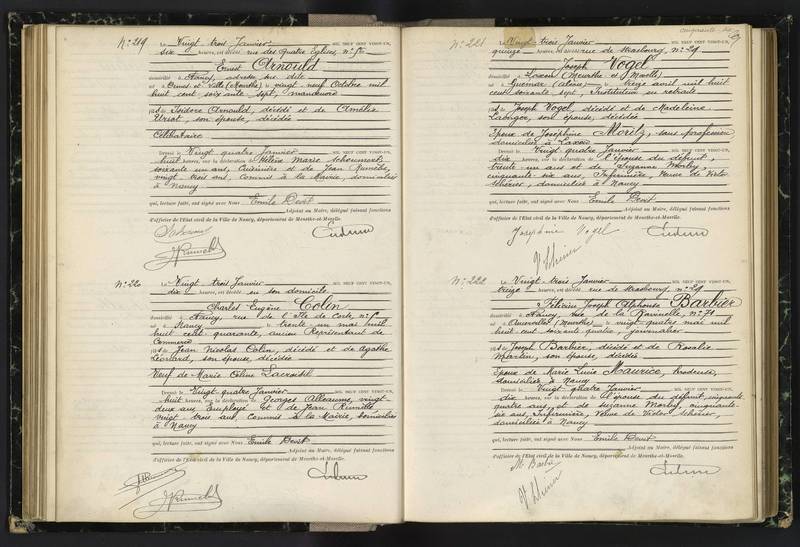 N° 219
Le Vingt-trois Janvier MIL NEUF CENT VINGT-UN,
six heures, est décédé rue des Quatre Eglises, n° 5
Ernest Arnould
domicilié à Nancy, adresse sus dite
né à Ornes et Ville (Meurthe) le vingt neuf Octobre mil
huit cent soixante sept, manœuvre
fils de Isidore Arnould, décédé et de Amélie
Ursot, son épouse, décédée
Célibataire
Dressé le Vingt quatre Janvier MIL NEUF CENT VINGT-UN,
huit heures, sur la déclaration de Hélène Marie
soixante un ans, Cuisinière et de Jean Rumelle,
vingt trois ans, Commis à la Mairie, domiciliés
à Nancy
qui, lecture faite, ont signé avec Nous Emile Devit
Adjoint au Maire, délégué faisant fonctions
d'officier de l'Etat civil de la Ville de Nancy, département de Meurthe-et-Moselle.
N° 220
Le Vingt-trois Janvier MIL NEUF CENT VINGT-UN,
dix heures, est décédé en son domicile
Charles Eugène Colin
domicilié à Nancy, rue de l'Ile de Corse, n° 5
né à Nancy le trente un mai mil
huit cent quarante, ancien Représentant de
Commerce
fils de Jean Nicolas Colin, décédé et de Agathe
Léonard, son épouse, décédée
Veuf de Marie Céline Lacroisil
Dressé le Vingt-quatre Janvier MIL NEUF CENT VINGT-UN,
huit heures, sur la déclaration de Georges Alleaume, vingt-
deux ans, Employé et de Jean Rumelle
vingt trois ans, Commis à la Mairie, domiciliés
à Nancy
qui, lecture faite, ont signé avec Nous Emile Devit
Adjoint au Maire, délégué faisant fonctions
d'officier de l'Etat civil de la Ville de Nancy, département de Meurthe-et-Moselle.
N° 221
Le Vingt-trois Janvier MIL NEUF CENT VINGT-UN,
quinze heures, est décédé rue de Strasbourg, n° 29
Joseph Vogel
domicilié à Laxou (Meurthe et Moselle)
né à Guémar (Alsace) le treize avril mil huit
cent soixante sept, Instituteur en retraite
fils de Joseph Vogel, décédé et de Madeleine
son épouse, décédée
Epoux de Joséphine Moritz, sans profession
domiciliée à Laxou
Dressé le Vingt quatre Janvier MIL NEUF CENT VINGT-UN,
dix heures, sur la déclaration de l'épouse du défunt,
trente un ans et de Suzanne Morley,
cinquante six ans, Infirmière, Veuve de Victor
Schérier, domiciliées à Nancy
qui, lecture faite, ont signé avec Nous Emile Devit
Adjoint au Maire, délégué faisant fonctions
d'officier de l'Etat civil de la Ville de Nancy, département de Meurthe-et-Moselle.
Joséphine Vogel
N° 222
Le Vingt-trois Janvier MIL NEUF CENT VINGT-UN,
treize heures, est décédé rue de Strasbourg, n° 29
Félicien Joseph Alphonse Barbier
domicilié à Nancy, rue de la Ravinelle, n° 71
né à (Meurthe) le vingt-quatre mai mil
huit cent soixante quatre, journalier
fils de Joseph Barbier, décédé et de Rosalie
Martin, son épouse, décédée
Epoux de Marie Lucie Maurice, brodeuse,
domiciliée à Nancy
Dressé le Vingt-quatre Janvier MIL NEUF CENT VINGT-UN,
dix heures, sur la déclaration de l'épouse du défunt, cinquante
quatre ans, et de Suzanne Morley, cinquante-
six ans, Infirmière, Veuve de Victor Schérier,
domiciliées à Nancy
qui, lecture faite, ont signé avec Nous Emile Devit
Adjoint au Maire, délégué faisant fonctions
d'officier de l'Etat civil de la Ville de Nancy, département de Meurthe-et-Moselle.
M. Barbier